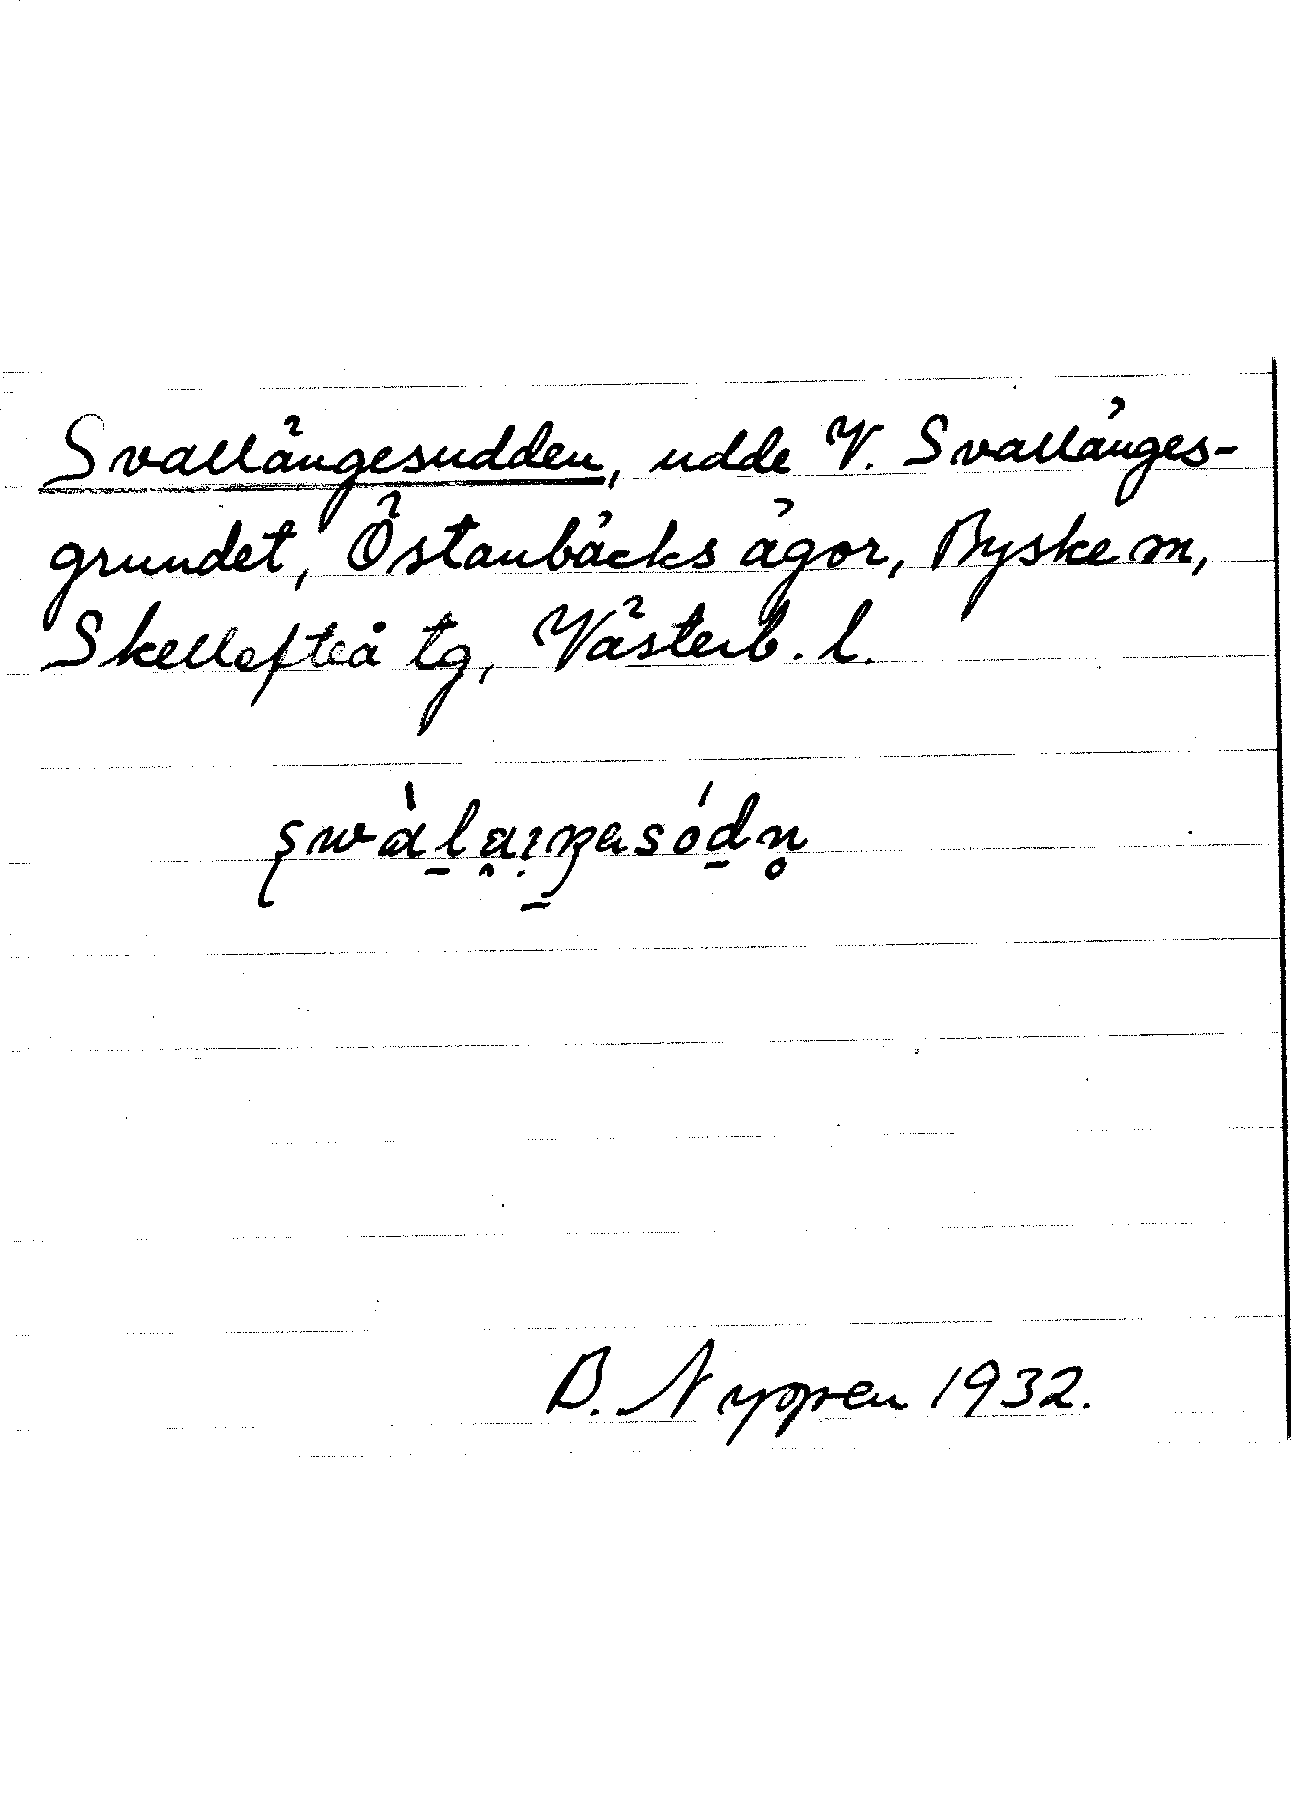 Svallängesudden, udde V. Svallänges-
grundet, Östanbäcks ägor, Byske sn,
Skellefteå tg, Västerb. l.
B. Nyppen 1932.